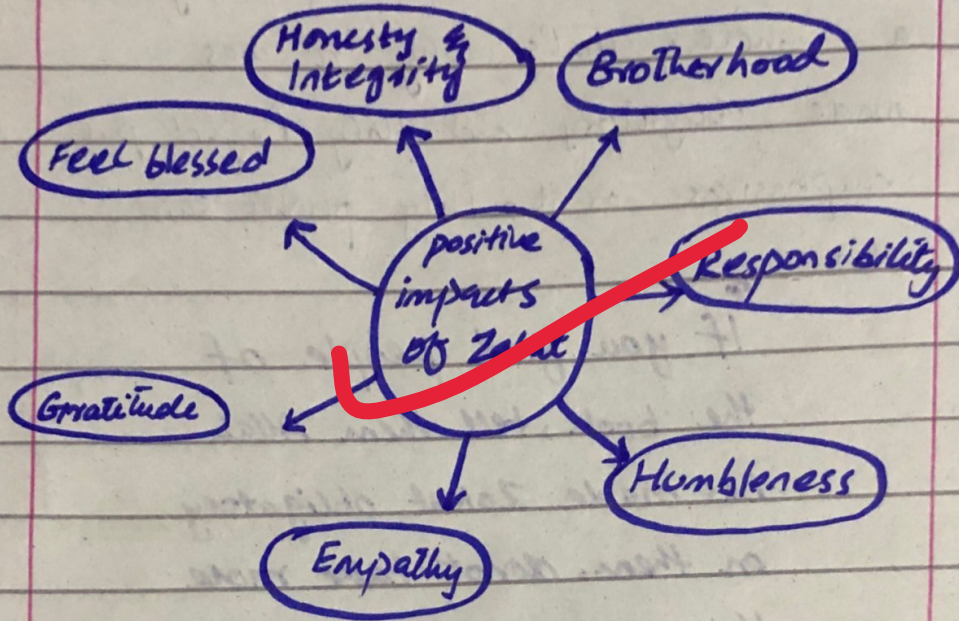 Honesty &
Integrity
Brotherhood
Feel blessed
positive
impacts
of Zakat
Responsibility
Gratitude
Humbleness
Empathy
If you
of